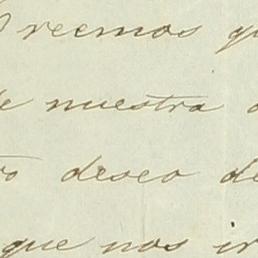 Creemos qu
de nuestra
ro deseo de
que nos ir